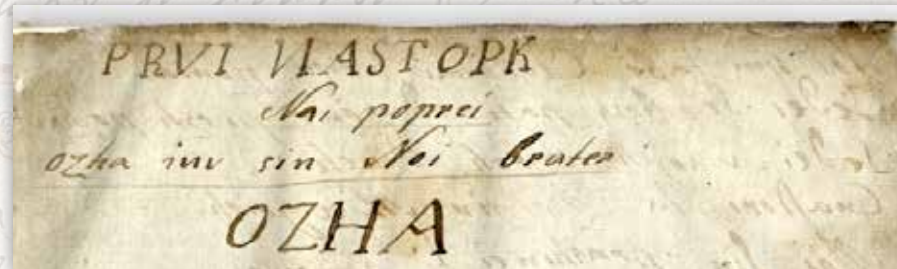 PRVI NASTOPK
Nai poprei
ozha inu sin Noi brater
OZHA